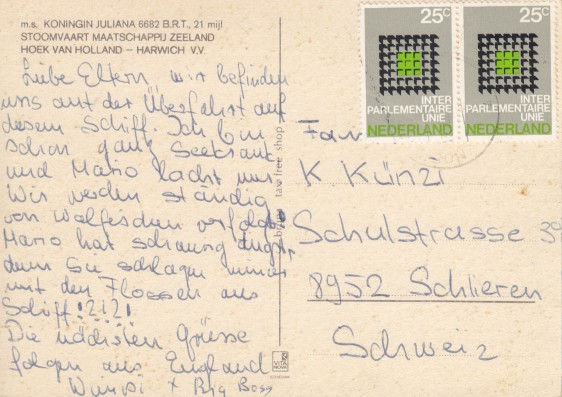 m.s. KONINGIN JULIANA 6682 B.R.T., 21 mijl
STOOMVAART MAATSCHAPPIJ ZEELAND
HOEK VAN HOLLAND – HARWICH V.V.
Liebe Eltern, wir befinden
uns auf der Überfahrt auf
diesem Schiff. Ich bin
schon ganz Seekrank
und Mario lacht nur.
Wir werden ständig
von Walfischen verfolgt.
Mario hat schaurig angst,
denn Sie schlagen immer
mit den Flossen ans
Schiff!?!?!
Die nächsten Grüsse
folgen aus England
+ Big Boss
tax free shop
VITA NOVA
SCHIEDAM
25c
INTER
PARLEMENTAIRE
UNIE
NEDERLAND
25c
INTER
PARLEMENTAIRE
UNIE
NEDERLAND
Fam
K Künzi
Schulstrasse 39
8952 Schlieren
Schweiz